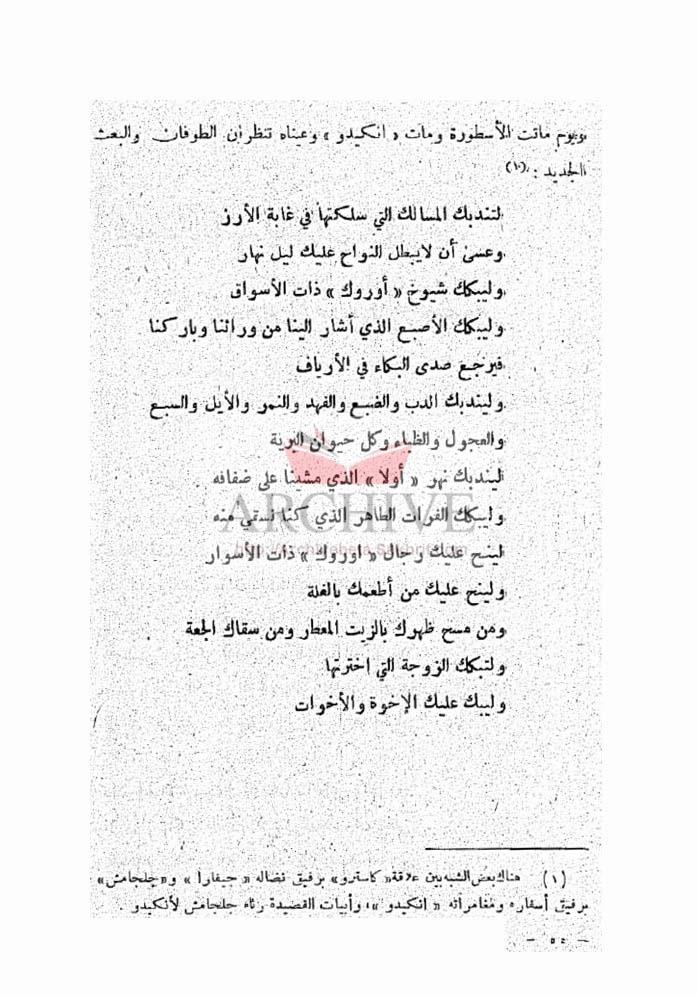 ويوم ماتت الأسطورة ومات « انكيدو » وعيناه تنظران الطوفان والبعث
الجديد : (١)
لتندبك المسالك التي سلكتها في غابة الأرز
وعسى أن لايبطل النواح عليك ليل نهار
وليبكك شيوخ « أوروك » ذات الأسواق
وليبكك الأصبع الذي أشار الينا من ورائنا وباركنا
فيرجع صدى البكاء في الأرياف
وليندبك الدب والضبع والفهد والنمر والأيل والسبع
والعجول والظباء وكل حيوان البرية
ليندبك نهر « أولا » الذي مشينا على ضفافه
وليبكك الفرات الطاهر الذي كنا نستقي منه
لينح عليك رجال « اوروك » ذات الأسوار
ولينح عليك من أطعمك بالغلة
ومن مسح ظهرك بالزيت المعطر ومن سقاك الجعة
ولتبكك الزوجة التي اخترتها
وليبك عليك الإخوة والأخوات
ARCHIVE
(١) هناك بعض الشبه بين علاقة « كاسترو » برفيق نضاله « جيفارا » و « جلجامش »
برفيق أسفاره ومغامراته « انكيدو »، وأبيات القصيدة رثاء جلجامش لأنكيدو .